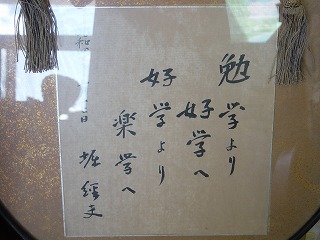 勉学より
好学へ
好学より
楽学へ
堀